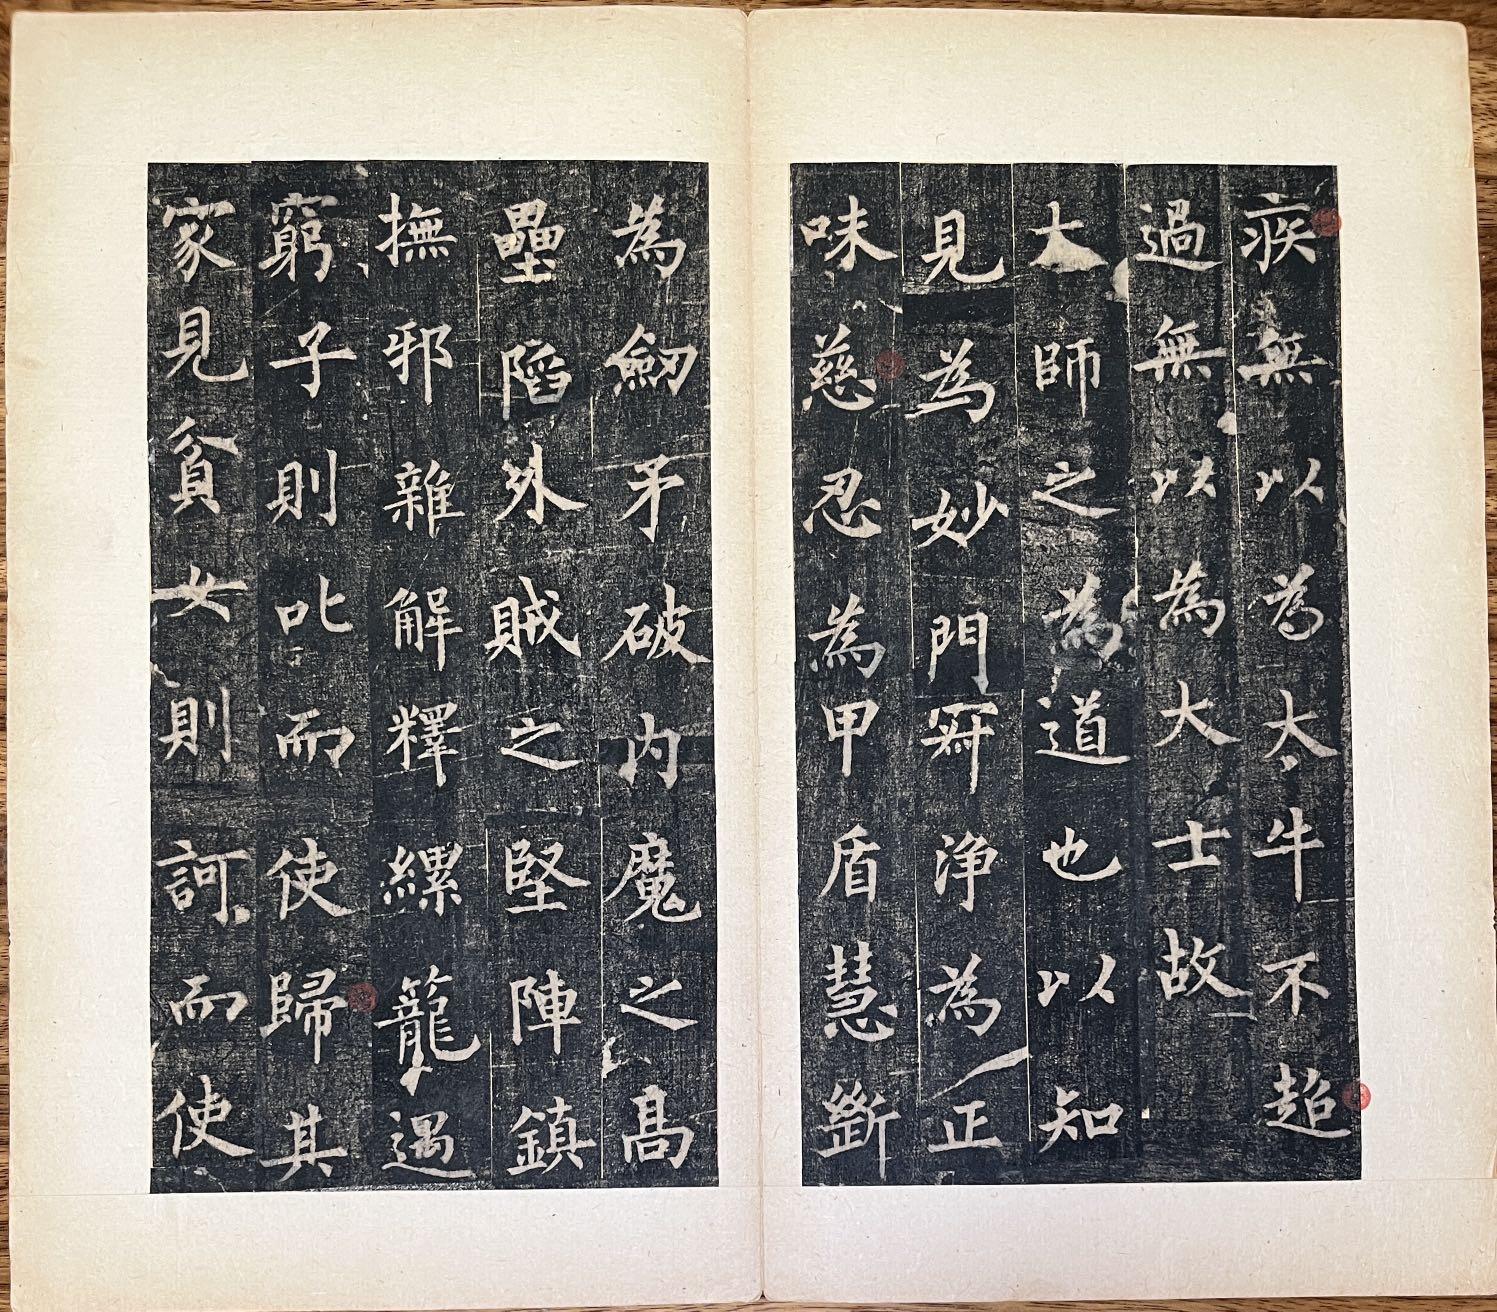 疾無以為大牛不超
過無以為大士故
大師之為道也以知
見為妙門寂淨為正
味慈忍為甲盾慧斷
為劒矛破內魔之高
壘陷外賊之堅陣鎮
撫邪雜解釋縲籠遇
窮子則叱而使歸其
家見貧女則訶而使